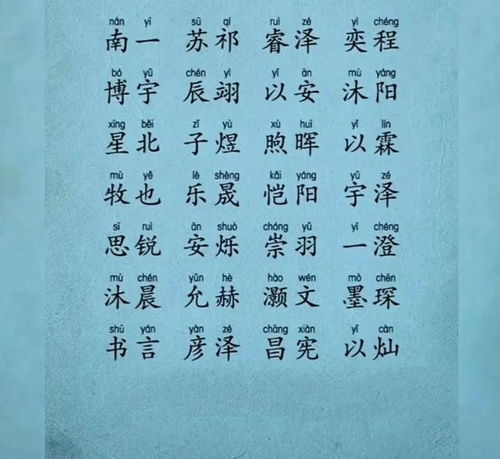 nán yī sū qí ruì zé yì chéng
南一 苏祁 睿泽 奕程
bó yǔ chén yì yǐ ān mù yáng
博宇 辰翊 以安 沐阳
xīng běi zǐ yù xù huī yǐ lín
星北 子煜 煦晖 以霖
mù yě lè shèng kǎi yáng yǔ zé
牧也 乐晟 恺阳 宇泽
sī ruì ān shuò chóng yǔ yī chéng
思锐 安烁 崇羽 一澄
mù chén yǔn hè hào wén mò chēn
沐晨 允赫 灏文 墨琛
shū yán yàn zé chāng xiàn yǐ càn
书言 彦泽 昌宪 以灿